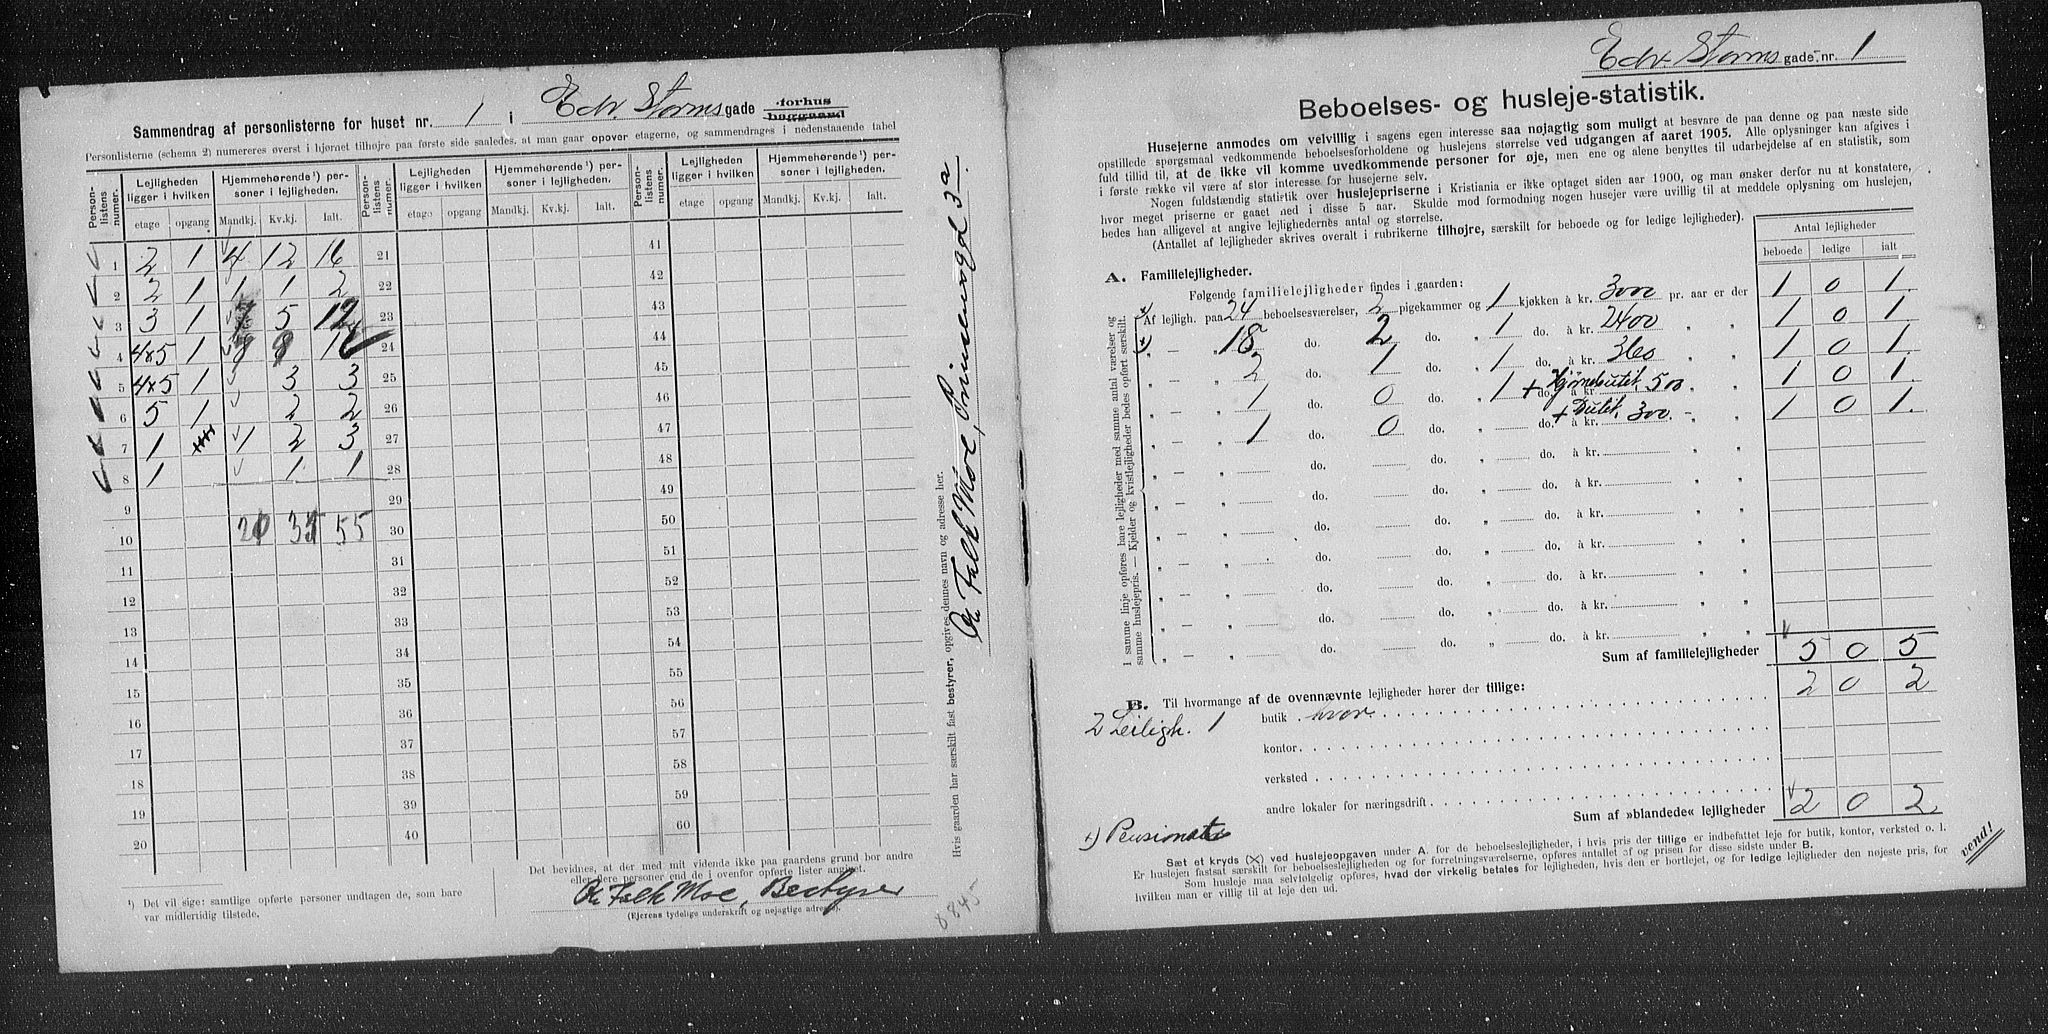 Sammendrag af personlisterne for huset nr. 1 i Edv. Storms gade forhus baggaard
Personlisterne (schema 2) numereres øverst i hjørnet tilhøjre paa første side saaledes, at man gaar opover etagerne, og sammendrages i nedenstaaende tabel
Person-listens numer. Lejligheden ligger i hvilken Hjemmehørende ¹) personer i lejligheden. Person-listens numer. Lejligheden ligger i hvilken Hjemmehørende ¹) personer i lejligheden. Person-listens numer. Lejligheden ligger i hvilken Hjemmehørende ¹) personer i lejligheden.
etage opgang Mandkj. Kv.kj. Ialt. etage opgang Mandkj. Kv.kj. Ialt. etage opgang Mandkj. Kv.kj. Ialt.
1 2 1 4 12 16 21 41
2 2 1 1 1 2 22 42
3 3 1 7 5 12 23 43
4 4x5 1 24 44
5 4x5 1 3 3 25 45
6 5 1 2 2 26 46
7 1 1 2 3 27 47
8 1 1 1 28 48
9 29 49
10 20 35 55 30 50
11 31 51
12 32 52
13 33 53
14 34 54
15 35 55
16 36 56
17 37 57
18 38 58
19 39 59
20 40 60
¹) Det vil sige: samtlige opførte personer undtagen de, som bare
var midlertidig tilstede.
Det bevidnes, at der med mit vidende ikke paa gaardens grund bor andre
eller flere personer end de i ovenfor opførte lister angivet.
Falk Moe, Bestyrer
(Ejerens tydelige underskrift og nøjagtige adresse.)
Hvis gaarden har særskilt fast bestyrer, opgives dennes navn og adresse her.
Falk Moe, Prinsensgd 3a
8845
Edv. Storms gade nr. 1
Beboelses- og husleje-statistik.
Husejerne anmodes om velvillig i sagens egen interesse saa nøjagtig som muligt at besvare de paa denne og paa næste side
opstillede spørgsmaal vedkommende beboelsesforholdene og huslejens størrelse ved udgangen af aaret 1905. Alle oplysninger kan afgives i
fuld tillid til, at de ikke vil komme uvedkommende personer for øje, men ene og alene benyttes til udarbejdelse af en statistik, som
i første række vil være af stor interesse for husejerne selv.
Nogen fuldstændig statistik over huslejepriserne i Kristiania er ikke optaget siden aar 1900, og man ønsker derfor nu at konstatere,
hvor meget priserne er gaaet ned i disse 5 aar. Skulde mod formodning nogen husejer være uvillig til at meddele oplysning om huslejen,
bedes han alligevel at angive lejlighedernes antal og størrelse.
(Antallet af lejligheder skrives overalt i rubrikerne tilhøjre, særskilt for beboede og for ledige lejligheder).
Antal lejligheder
beboede ledige ialt
A. Familielejligheder.
Følgende familielejligheder findes i gaarden:
I samme linje opføres bare lejligheder med samme antal værelser og
samme huslejepris. — Kjelder og kvistlejligheder bedes opført særskilt.
+) Af lejligh. paa 24 beboelsesværelser, 2 pigekammer og 1 kjøkken à kr. 3000 pr. aar er der 1 0 1
+) „ — „ 18 do. 2 do. 1 do. à kr. 2400 „ „ 1 0 1
„ — „ 2 do. 1 do. 1 do. à kr. 360 „ „ 1 0 1
„ — „ 1 do. 0 do. 1 do. à kr. 500 „ „ 1 0 1
„ — „ 1 do. 0 do. + Butik do. à kr. 300 „ „ 1 0 1
„ — „ do. do. „ do. à kr. „ „
„ — „ do. do. „ do. à kr. „ „
„ — „ do. do. „ do. à kr. „ „
„ — „ do. do. „ do. à kr. „ „
„ — „ do. do. „ do. à kr. „ „
„ — „ do. do. „ do. à kr. „ „
„ — „ do. do. „ do. à kr. „ „
Sum af familielejligheder 5 0 5
B. Til hvormange af de ovennævnte lejligheder hører der tillige:
2 Leiligh. 1 butik hver 2 0 2
kontor
verksted
andre lokaler for næringsdrift
Sum af »blandede« lejligheder 2 0 2
+) Pensionater
Sæt et kryds (×) ved huslejeopgaven under A. for de beboelseslejligheder, i hvis pris der tillige er indbefattet leje for butik, kontor, verksted o. l.
Er huslejen fastsat særskilt for beboelseslejligheden og for forretningsværelserne, opføres antallet af og prisen for disse sidste under B.
Som husleje maa selvfølgelig opføres, hvad der virkelig betales for lejligheden, hvis den er bortlejet, og for ledige lejligheder den nøjeste pris, for
hvilken man er villig til at leje den ud.
vend!